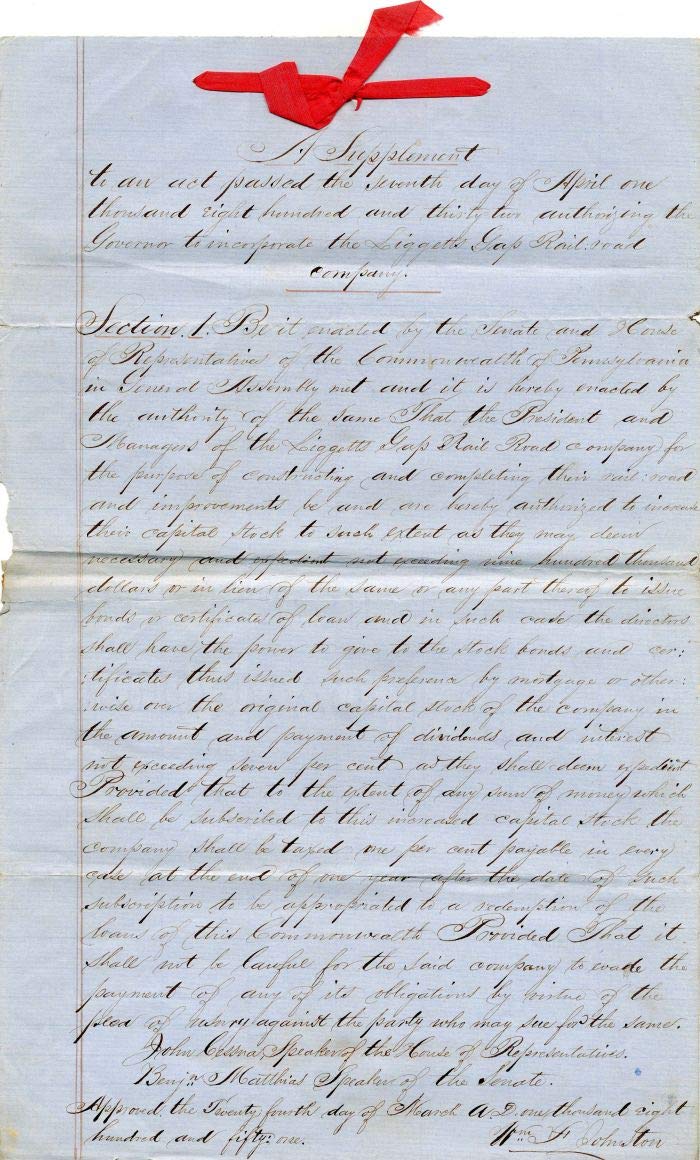 A Supplement
to an act passed the seventh day of April one
thousand eight hundred and thirty two authorizing the
Governor to incorporate the Liggetts Gap Rail:road
company.
Section. 1. Be it enacted by the Senate and House
of Representatives of the Commonwealth of Pennsylvania
in General Assembly met and it is hereby enacted by
the authority of the same That the President and
Managers of the Liggetts Gap Rail Road company for
the purpose of constructing and completing their rail:road
and improvements be and are hereby authorized to increase
their capital stock to such extent as they may deem
necessary and expedient not exceeding nine hundred thousand
dollars or in lieu of the same or any part thereof to issue
bonds or certificates of loan and in such case the directors
shall have the power to give to the stock bonds and cer:
:tificates thus issued such preference by mortgage or other:
:wise over the original capital stock of the company in
the amount and payment of dividends and interest
not exceeding seven per cent as they shall deem expedient
Provided that to the extent of any sum of money which
shall be subscribed to this increased capital stock the
company shall be taxed one per cent payable in every
case at the end of one year after the date of such
subscription to be appropriated to a redemption of the
loans of this Commonwealth Provided That it
shall not be lawful for the said company to evade the
payment of any of its obligations by virtue of the
plea of usury against the party who may sue for the same.
John Cessna, Speaker of the House of Representatives.
Benjn. Matthias Speaker of the Senate.
Approved, the Twenty:fourth day of March A.D. one thousand eight
hundred and fifty:one.
Wm F Johnston